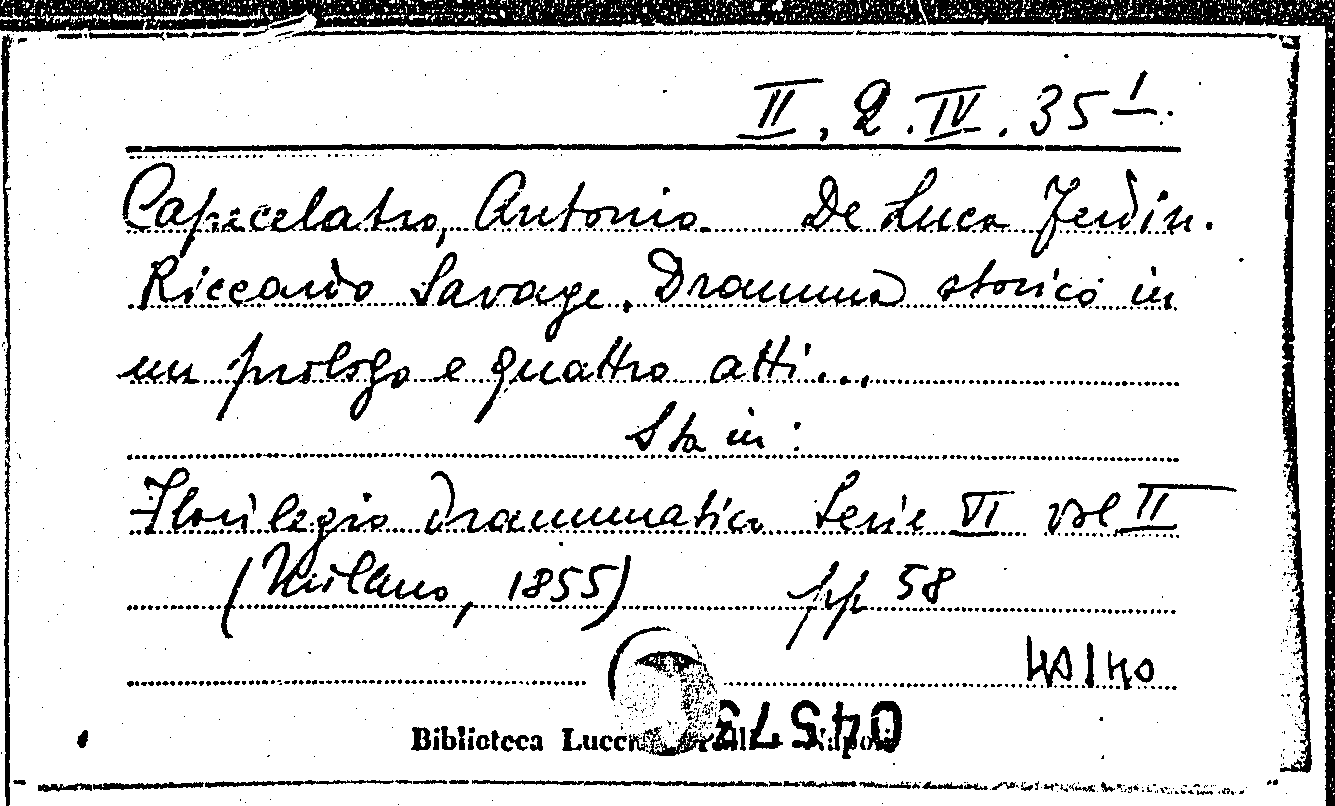 II. 2. IV. 35 1.
Capecelatro, Antonio. De Luca Ferdin.
Riccardo Savage. Dramma storico in
un prologo e quattro atti...
Sta in:
Florilegio drammatico Serie VI vol II
(Milano, 1855) pp 58
Biblioteca Napoli